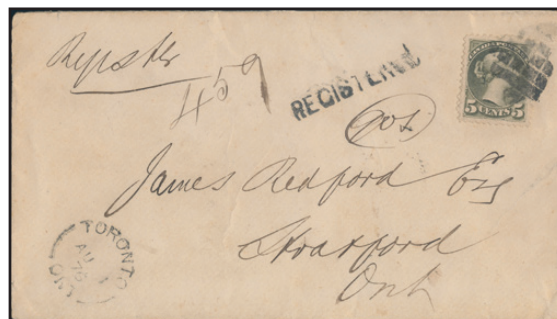 Register
459
REGISTERED
5 CENTS 5
James Redford Esq
Stratford
Ont
TORONTO
AU
ONT